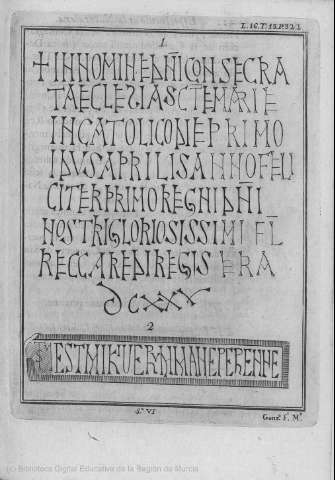 L. 16. T. 15. P. 322.
1
+ IN NOMINE DÑI CONSECRA
TA ECLESIA SCTE MARIE
IN CATOLICO DIE PRIMO
IDUS APRILIS ANNO FELI
CITER PRIMO REGNI DÑI
NOSTRI GLORIOSISSIMI FL
RECCAREDI REGIS ERA
DCXXV
2
EST MIKVERHIMANE PERENNE
(c) Biblioteca Digital Educativa de la Región de Murcia